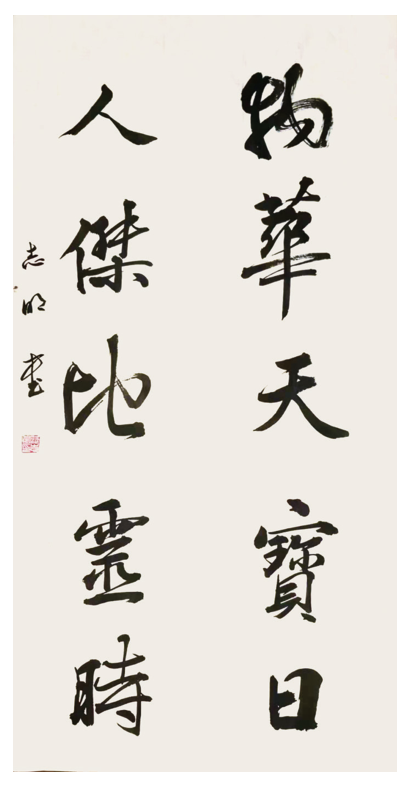 物華天寶日
人傑地靈時
志明書